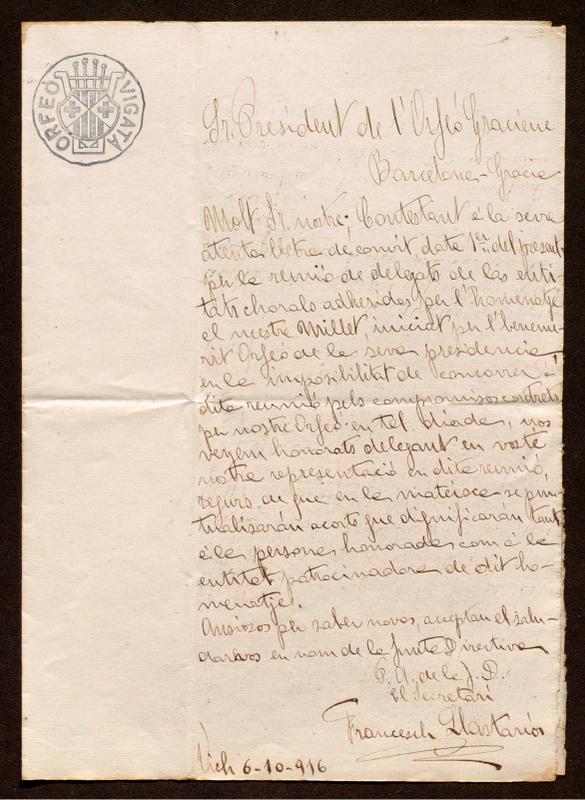 ORFEÓ VIGATÀ
Sr. President de l'Orfeó Gracienc
Barcelona-Gracia
Molt Sr. nostre; Contestant á la seva
atenta lletra de convit, data 1er. del present,
per la reunió de delegats de las enti-
tats chorals adheridas per l'homenatge
al mestre Millet, iniciat per l'beneme-
rit Orfeó de la seva presidencia,
en la imposibilitat de concorrer á
dita reunió pels compromisos contrets
per nostre Orfeó en tal diada, nos
veyem honorats delegant en vosté
nostra representació en dita reunió,
segurs de que en la mateixa se pun-
tualisarán acorts que dignificarán tant
á la persona honorada com á la
entitat patrocinadora de dit ho-
menatje.
Ansiosos per saber novas, acceptan el salu-
darvos en nom de la Junta Directiva
P. A. de la J. D.
El Secretari
Francesch Llastanós
Vich 6-10-916